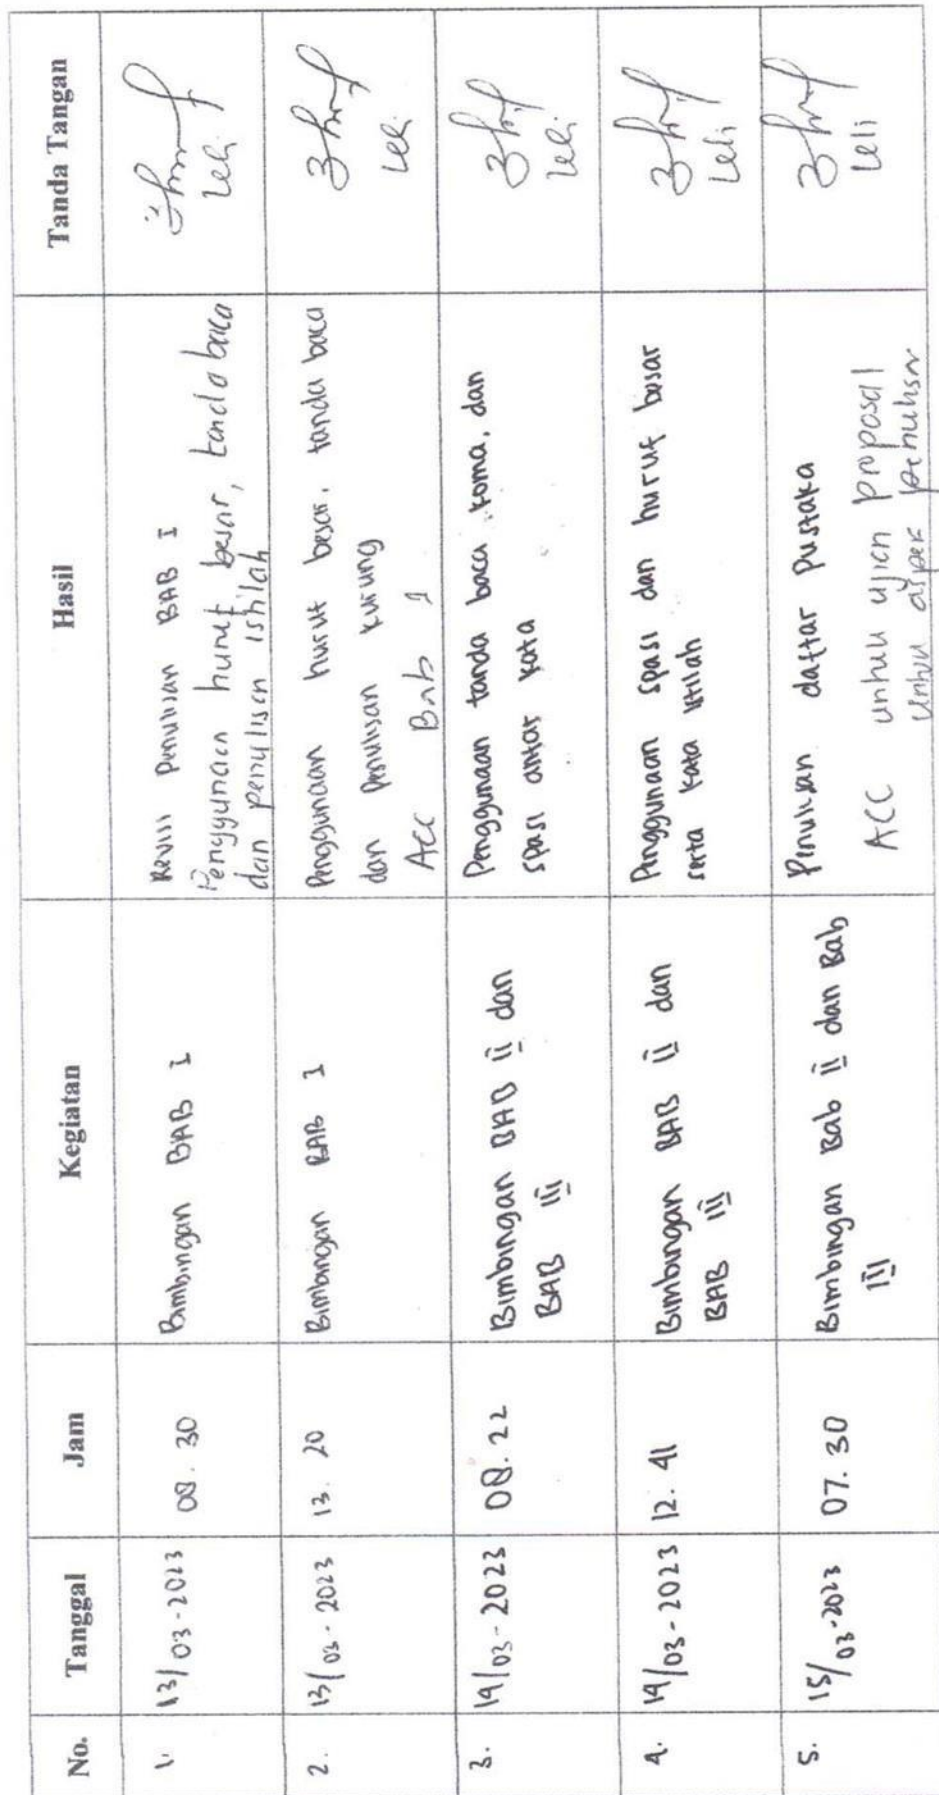 No. Tanggal Jam Kegiatan Hasil Tanda Tangan
1. 13/03-2023 08.30 Bimbingan BAB I Revisi Penulisan BAB I
Penggunaan huruf besar, tanda baca
dan penulisan istilah
Leli
2. 13/03-2023 13.20 Bimbingan BAB I Penggunaan huruf besar, tanda baca
dan Penulisan kurung
ACC Bab I
Leli
3. 14/03-2023 08.22 Bimbingan BAB II dan
BAB III
Penggunaan tanda baca koma, dan
spasi antar kata
Leli
4. 14/03-2023 12.41 Bimbingan BAB II dan
BAB III
Penggunaan spasi dan huruf besar
serta kata istilah
Leli
5. 15/03-2023 07.30 Bimbingan Bab II dan Bab
III
Penulisan daftar Pustaka
ACC untuk ujian proposal
untuk aspek penulisan
Leli